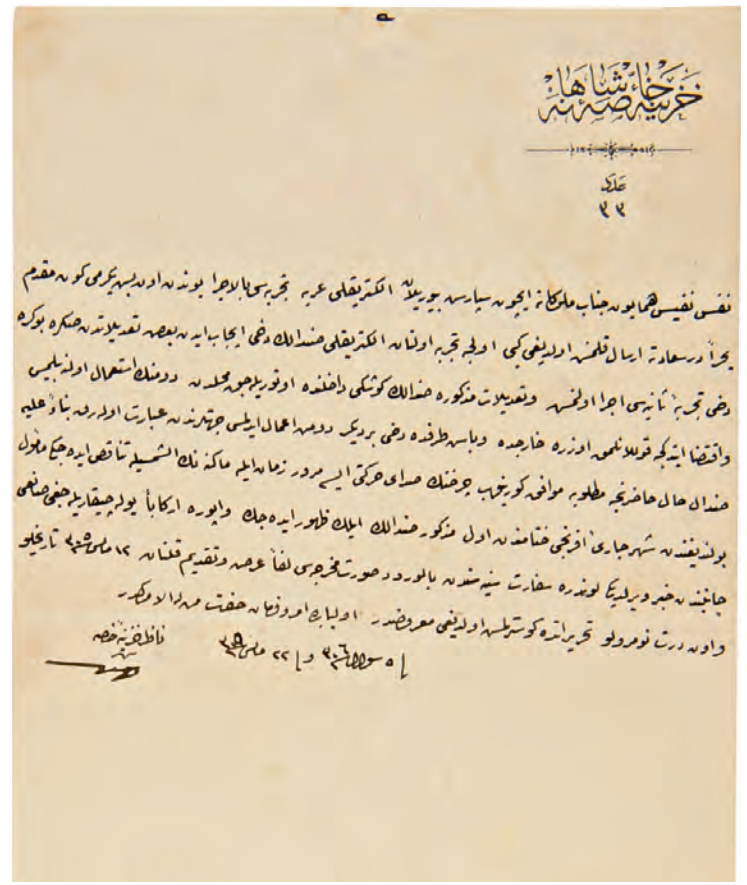 خزينهٔ خاصهٔ شاهانه
عدد
٣٣
نفس نفيس همايون جناب ملوكانه ايچون سپارش بيوريلان الكتريقلى عربه تجربه‌سى بالاجرا بوندن اون بش يكرمى كون مقدم
بحراً درسعادته ارسال قلنمش اولديغى كبى اولجه تجربه اولنان الكتريقلى صندالك دخى ايجاب ايدن بعض تعديلاتدن صكره بو كره
دخى تجربهٔ ثانيه‌سى اجرا اولنمش وتعديلات مذكوره صندالك كوشكى داخلنده اوتوريله‌جق محلدن دومنك استعمال اولنه‌بيلمسى
واقتضا ايتدكجه قوللانلمق اوزره خارجده وباش طرفده دخى بر ديكر دومن اعمال ايدلمسى جهتلرندن عبارت اوله‌رق بناءً عليه
صندال حال حاضرنجه مطلوبه موافق كورينوب چرخنك صداى حركتى ايسه مرور زمان ايله ماكنه‌نك الشمسيله تناقص ايده‌جكى مأمول
بولنديغندن شهر جارئ افرنجى ختامندن اول مذكور صندالك ايلك ظهور ايده‌جك واپوره اركاباً يوله چيقاريله‌جغى صانعى
جانبندن خبر ويرلديكى لوندره سفارت سنيه‌سندن بالورود صورت مخرجه‌سى لفاً عرض وتقديم قلنان ١٢ مارس ٣٠٥ تاريخلو
واون درت نومرولو تحريراتده كوسترلمش اولديغى معروضدر اولبابده امر وفرمان حضرت من له الامركدر
ناظر خزينهٔ خاصه
٣٠٦ و ٢٢ مارس